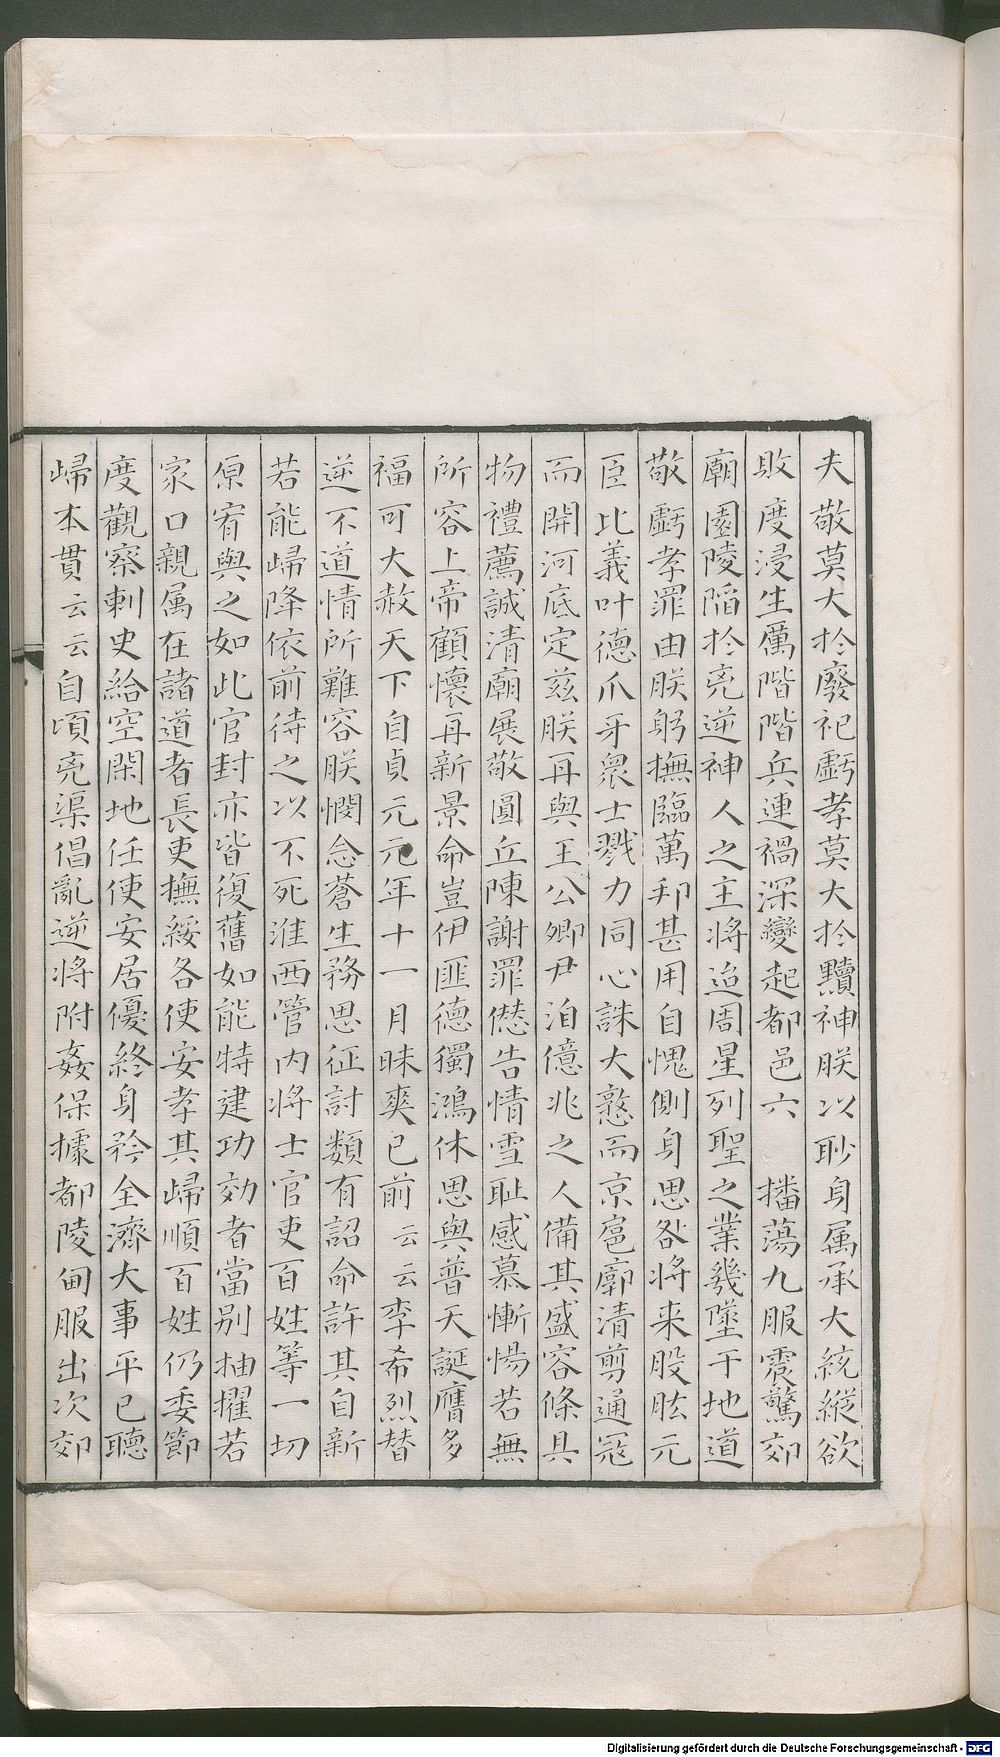 夫敬莫大於廢祀虧孝莫大於黷神朕以眇身属承大統縱欲
敗度浸生厲階階兵連禍深變起都邑六　播蕩九服震驚郊
廟園陵陷於兇逆神人之主將迨周星列聖之業幾墜于地道
敬虧孝罪由朕躬撫臨萬邦甚用自愧側身思咎将来股肱元
臣比義叶德爪牙衆士戮力同心誅大憝而京邑廓清剪逋冦
而開河底定兹朕再與王公卿尹洎億兆之人備其盛容條具
物禮薦誠清廟展敬圓丘陳謝罪愆告情雪耻感慕慚惕若無
所容上帝顧懷再新景命豈伊匪德獨鴻休思與普天誕膺多
福可大赦天下自貞元元年十一月昧爽已前云云李希烈替
逆不道情所難容朕憫念蒼生務思征討類有詔命許其自新
若能歸降依前待之以不死淮西管内將士官吏百姓等一切
原宥與之如此官封亦皆復舊如能特建功効者當别抽擢若
家口親属在諸道者長吏撫綏各使安孝其歸順百姓仍委節
度觀察刺史給空閑地任便安居優終身矜全濟大事平已聽
歸本貫云云自頃兇渠倡亂逆将附姦保據都陵甸服出次郊
Digitalisierung gefördert durch die Deutsche Forschungsgemeinschaft - DFG